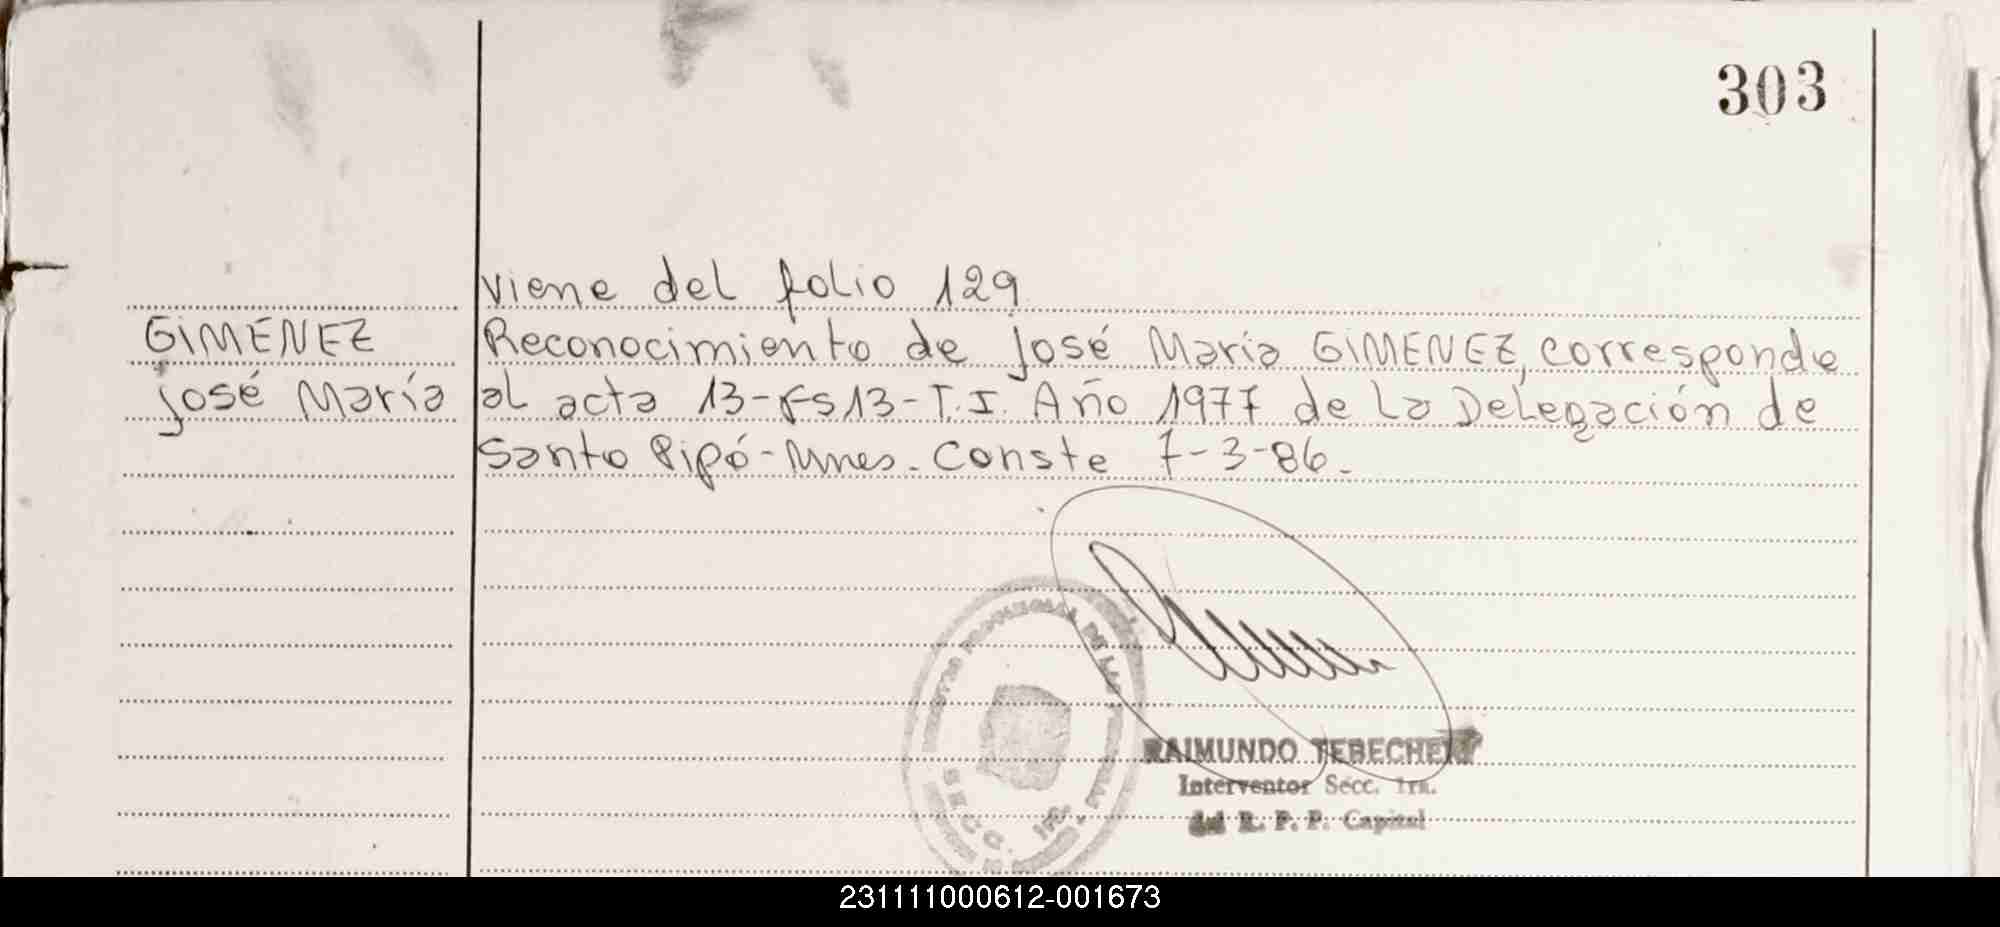 303
viene del folio 129
GIMENEZ
José María
Reconocimiento de José María GIMENEZ, corresponde
al acta 13-Fs13-T.I. Año 1977 de la Delegación de
Santo Pipó-Mnes. Conste 7-3-86.
DE LAS
SECC. 1RA.
RAIMUNDO TEBECHERY
Interventor Secc. 1ra.
del R. P. P. Capital
231111000612-001673